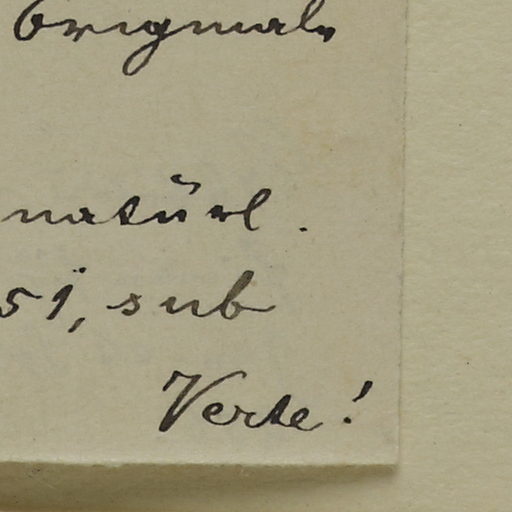 Original
natürl.
51, sub
Verte!